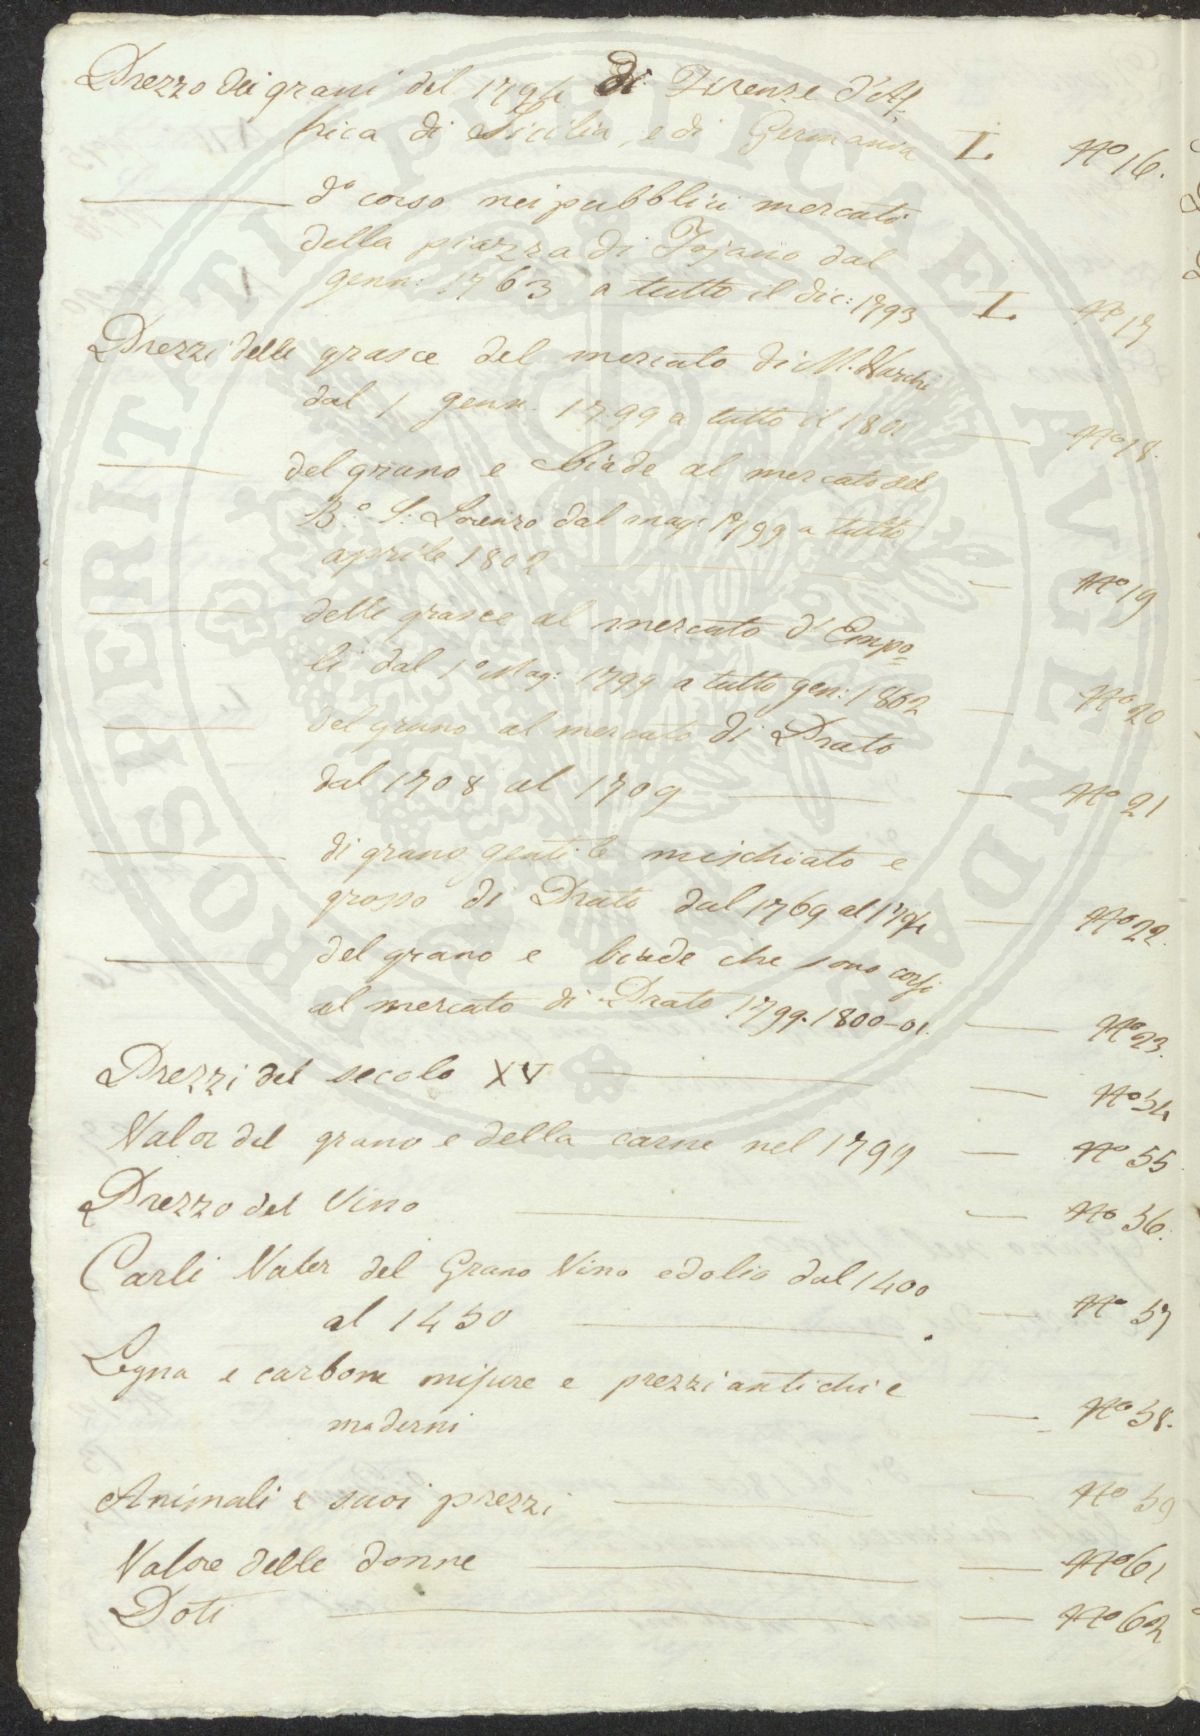 Prezzo dei grani del 1794 di Firenze d'Af-
frica di Sicilia, e di Germania I. N° 16.
d° corso nei pubblici mercati
della piazza di Fojano dal
genn: 1763 a tutto il dic: 1793 I. N° 17
Prezzi delle grasce del mercato di M. Varchi
dal 1 genn. 1799 a tutto il 1801 N° 18.
del grano e biade al mercato del
B.° S. Lorenzo dal mag: 1799 a tutto
aprile 1802 N° 19
delle grasce al mercato d'Empo=
li dal 1° Mag: 1799 a tutto gen: 1802 N° 20
del grano al mercato di Prato
dal 1708 al 1709 N° 21
di grano gentile mischiato e
grosso di Prato dal 1769 al 1794 N° 22.
del grano e biade che sono corsi
al mercato di Prato 1799. 1800-01. N° 23.
Prezzi del secolo XV N° 54
Valor del grano e della carne nel 1799 N° 55
Prezzo del Vino N° 56.
Carli Valor del Grano Vino ed olio dal 1400
al 1450 N° 57
Legna e carbone misure e prezzi antichi e
moderni N° 58.
Animali e suoi prezzi N° 59
Valore delle donne N° 61
Doti N° 62
PROSPERITATI PUBLICAE AUGENDAE